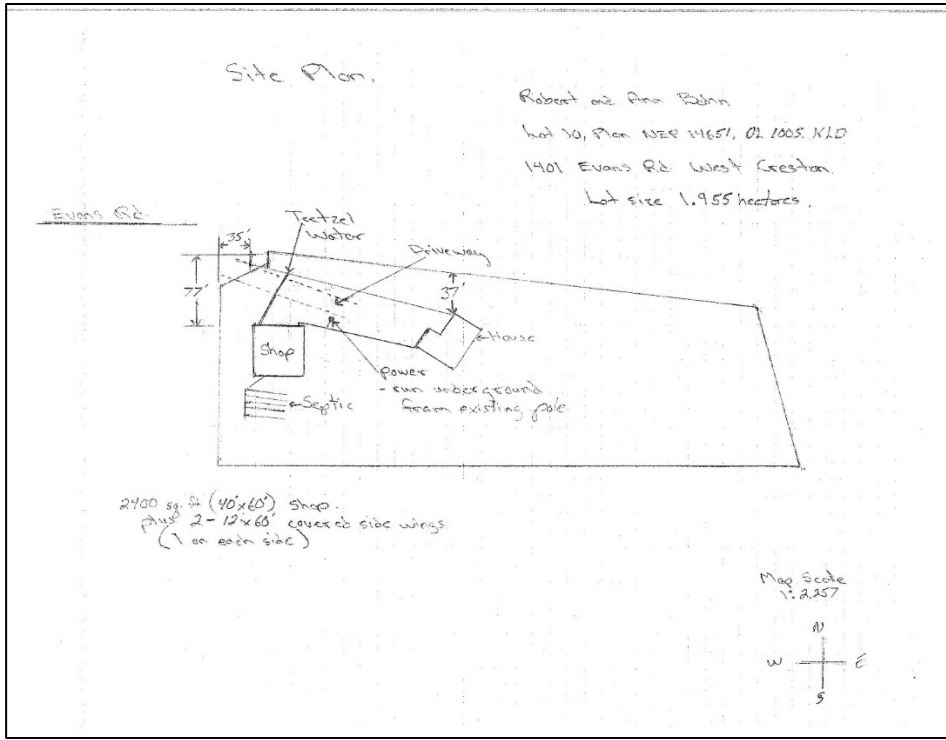 Site Plan.
Robert and Ann Bohn
Lot 10, Plan NEP 14651, DL 1005, KLD
1401 Evans Rd West Creston
Lot size 1.955 hectares.
Evans Rd
Teetzel
Water
35'
Driveway
77'
37'
House
Shop
Power
- run underground
from existing pole
Septic
2400 sq. ft (40'x60') Shop.
plus 2-12x60' covered side wings
(1 on each side)
Map Scale
1:2,257
N
W E
S